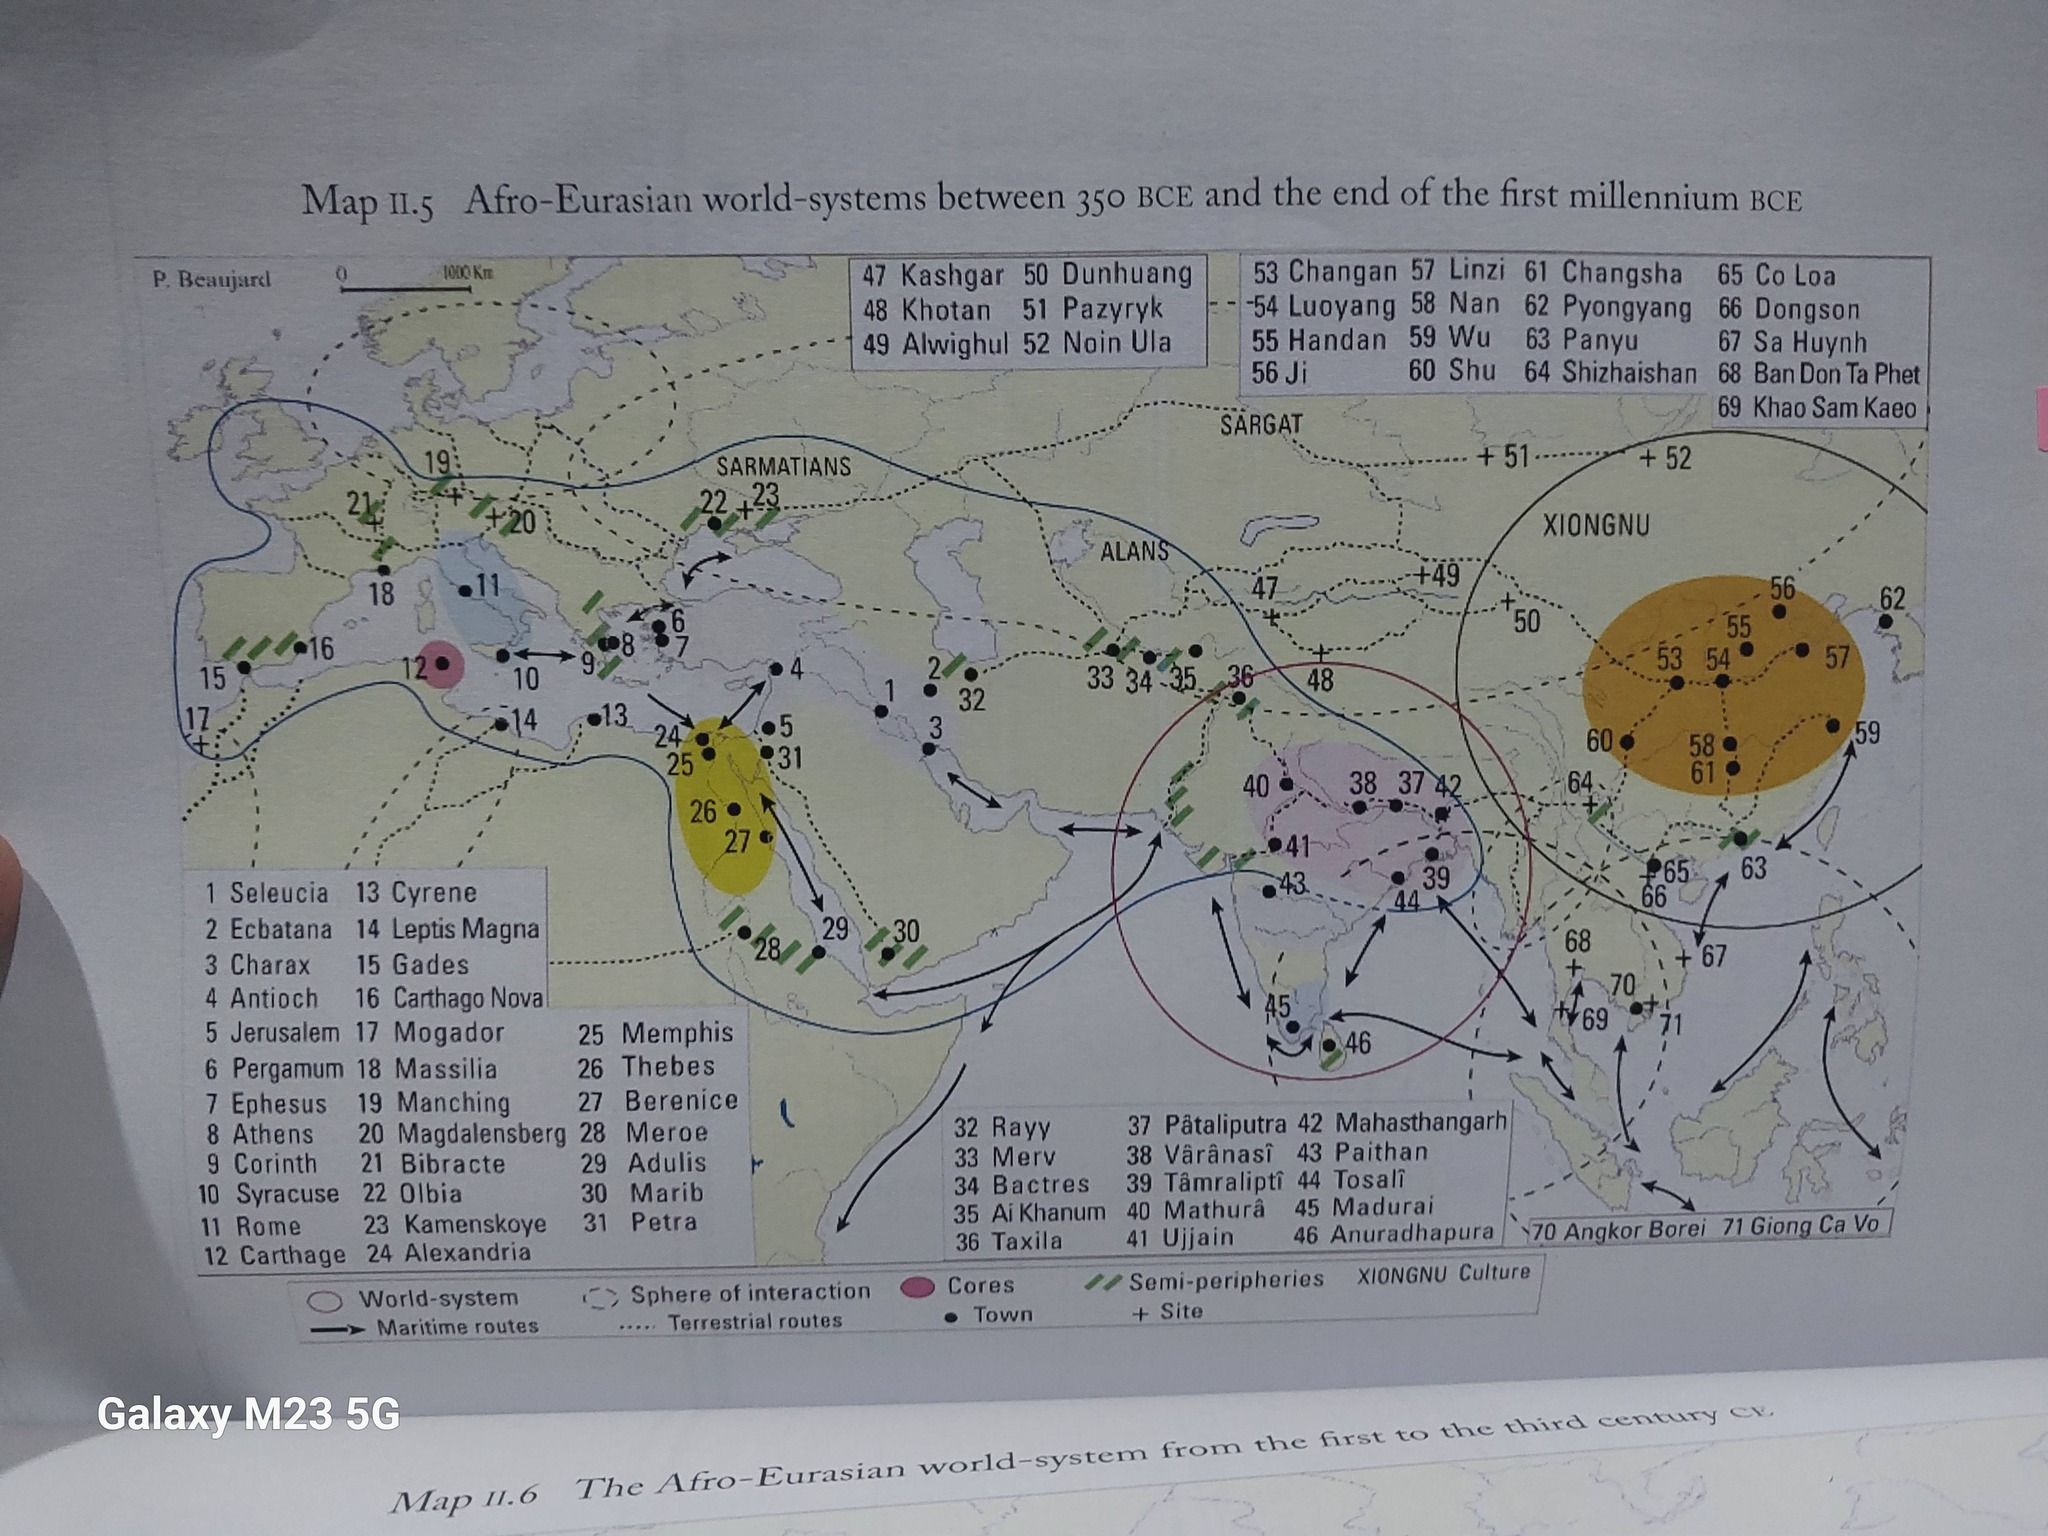 Map II.5 Afro-Eurasian world-systems between 350 BCE and the end of the first millennium BCE
P. Beaujard
0 1000 Km
47 Kashgar 50 Dunhuang
48 Khotan 51 Pazyryk
49 Alwighul 52 Noin Ula
53 Changan 57 Linzi 61 Changsha 65 Co Loa
54 Luoyang 58 Nan 62 Pyongyang 66 Dongson
55 Handan 59 Wu 63 Panyu 67 Sa Huynh
56 Ji 60 Shu 64 Shizhaishan 68 Ban Don Ta Phet
69 Khao Sam Kaeo
SARGAT
SARMATIANS
51
52
19
22
23
21
20
XIONGNU
ALANS
11
18
47
49
50
56
62
6
8
7
16
55
15
12
10
9
4
2
32
33
34
35
36
48
53
54
57
17
14
13
1
3
5
24
25
31
60
58
59
61
40
38
37
42
64
26
27
41
43
39
44
65
66
63
28
29
30
68
67
70
69
71
45
46
1 Seleucia 13 Cyrene
2 Ecbatana 14 Leptis Magna
3 Charax 15 Gades
4 Antioch 16 Carthago Nova
5 Jerusalem 17 Mogador 25 Memphis
6 Pergamum 18 Massilia 26 Thebes
7 Ephesus 19 Manching 27 Berenice
8 Athens 20 Magdalensberg 28 Meroe
9 Corinth 21 Bibracte 29 Adulis
10 Syracuse 22 Olbia 30 Marib
11 Rome 23 Kamenskoye 31 Petra
12 Carthage 24 Alexandria
32 Rayy 37 Pâtaliputra 42 Mahasthangarh
33 Merv 38 Vârânasî 43 Paithan
34 Bactres 39 Tâmraliptî 44 Tosalî
35 Ai Khanum 40 Mathurâ 45 Madurai
36 Taxila 41 Ujjain 46 Anuradhapura
70 Angkor Borei 71 Giong Ca Vo
World-system Sphere of interaction Cores Semi-peripheries XIONGNU Culture
Maritime routes Terrestrial routes Town + Site
Galaxy M23 5G
Map II.6 The Afro-Eurasian world-system from the first to the third century CE